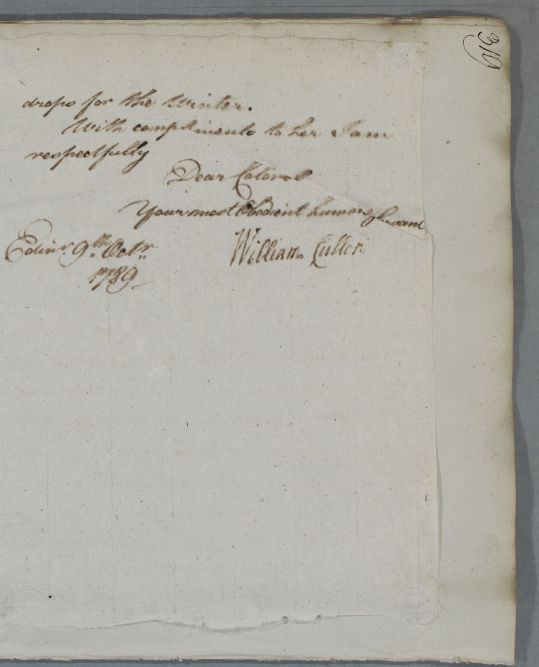 316
drops for the Winter.
With compliments to her I am
respectfully
Dear Colonel
Your most Obedient humble Servant
Edinr. 9th. Octr.
1789
William Cullen